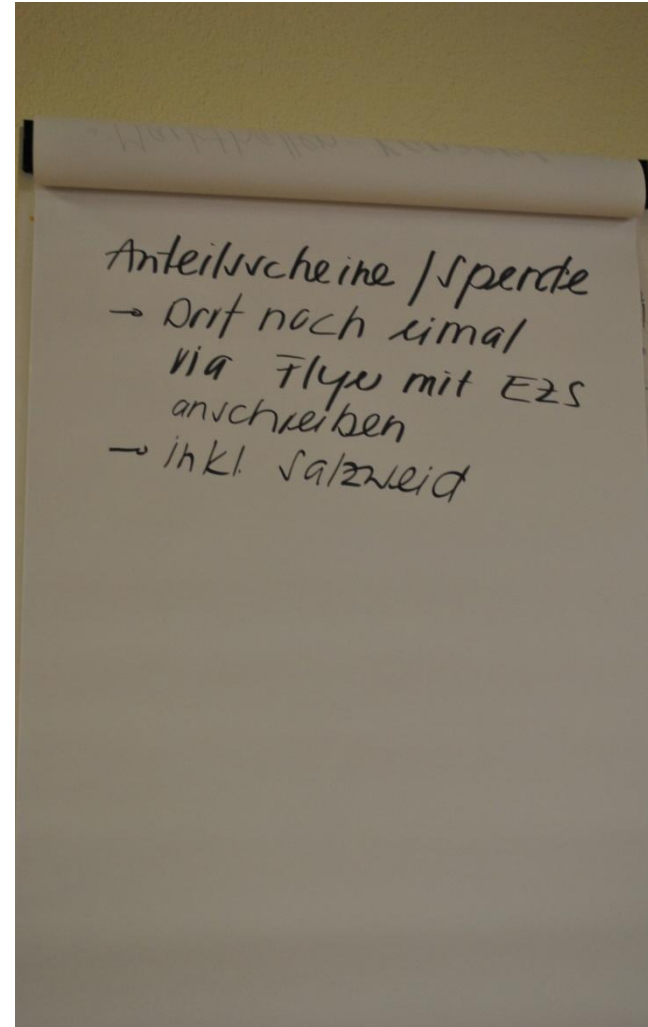 Anteilsscheine / Spende
→ Dorf noch eimal
via Flyer mit EZS
anschreiben
→ inkl. Salzweid